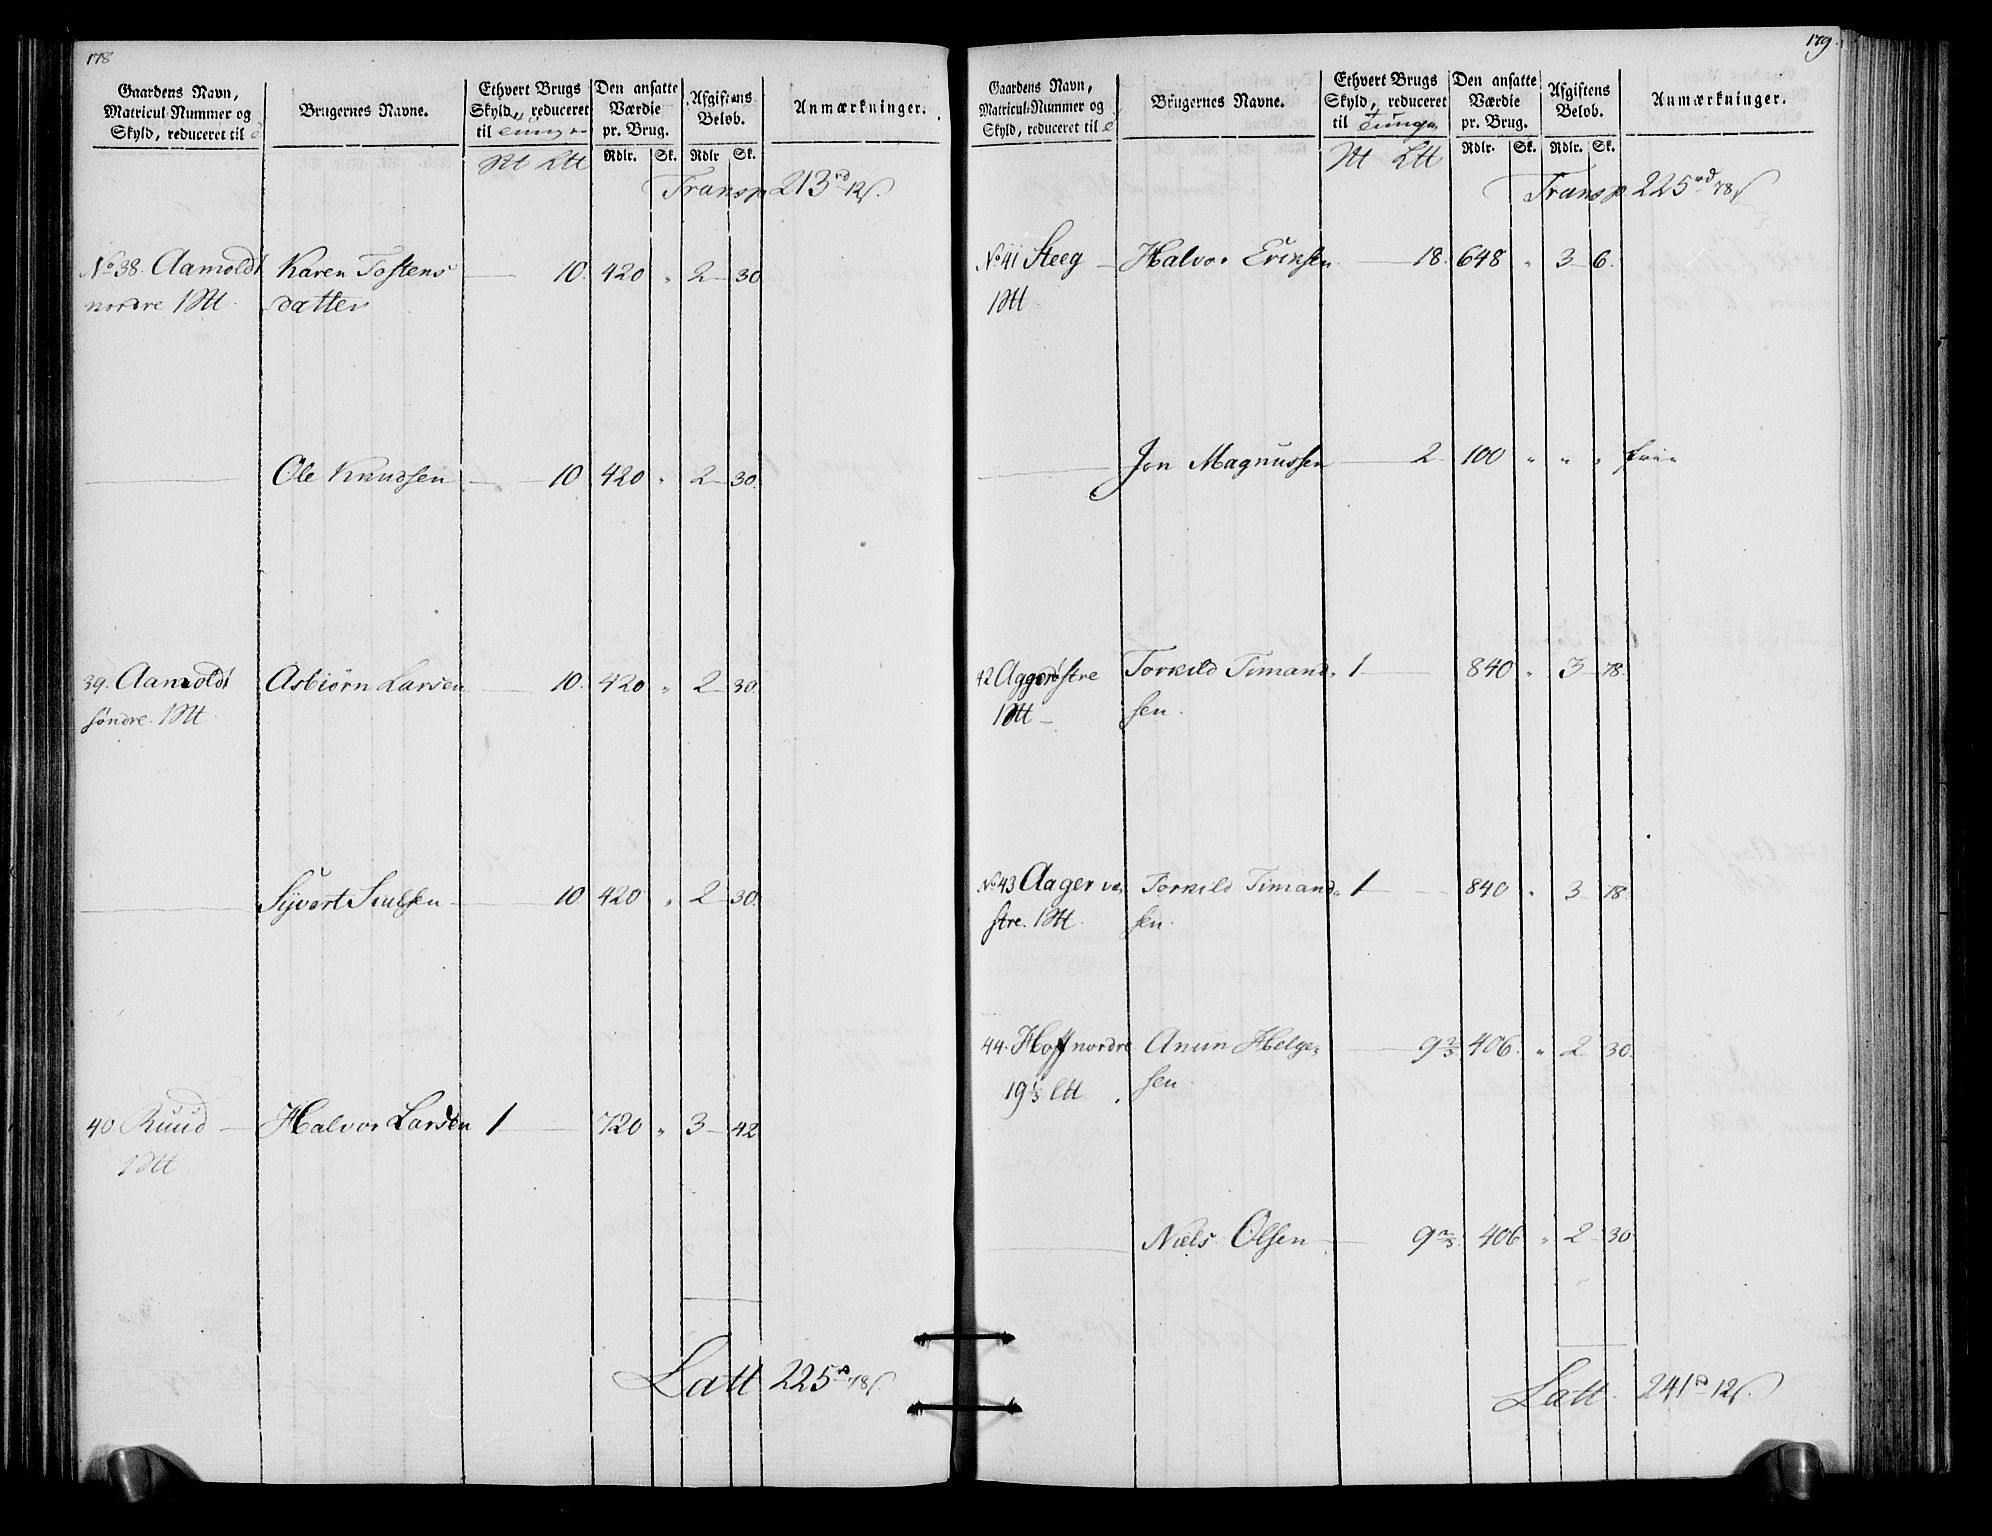 178
Gaardens Navn,
Matricul-Nummer og
Skyld, reduceret til
Brugernes Navne.
Ethvert Brugs
Skyld, reduceret
til Tunge
Den ansatte
Værdie
pr. Brug.
Afgiftens
Beløb.
Anmærkninger.
Rdlr. Sk. Rdlr Sk.
Transp 213 rd 12 s.
No 38. Aamoldt Karen Tostens 10. 420 " 2 30
nordre datter
Ole Knudsen 10 420 " 2 30.
39. Aamoldt Asbiörn Larsen 10. 420 " 2 30.
söndre.
Syvert 10 420 " 2 30.
40 Ruud Halvor Larsen 1 720 " 3 42
Latt 225 78 s.
179.
Gaardens Navn,
Matricul-Nummer og
Skyld, reduceret til
Brugernes Navne.
Ethvert Brugs
Skyld, reduceret
til Tunge
Den ansatte
Værdie
pr. Brug.
Afgiftens
Beløb.
Anmærkninger.
Rdlr. Sk. Rdlr. Sk.
Transp. 225 rd 78 s
No 41 Steeg Halvor 18. 648 " 3 6.
Jon Magnussen 2 100 " " " frie
42 Agger östre Torkild Timand 1 840 " 3 78.
sen.
No 43 Aager ve Torkild Timand 1 840 " 3 78.
stre. sen.
44. Hoff nordre Anun Helge 9 2/3 406. " 2 30.
19 1/3 sen.
Niels Olsen 9 2/3 406 " 2 30
Latt. 241 12 s.